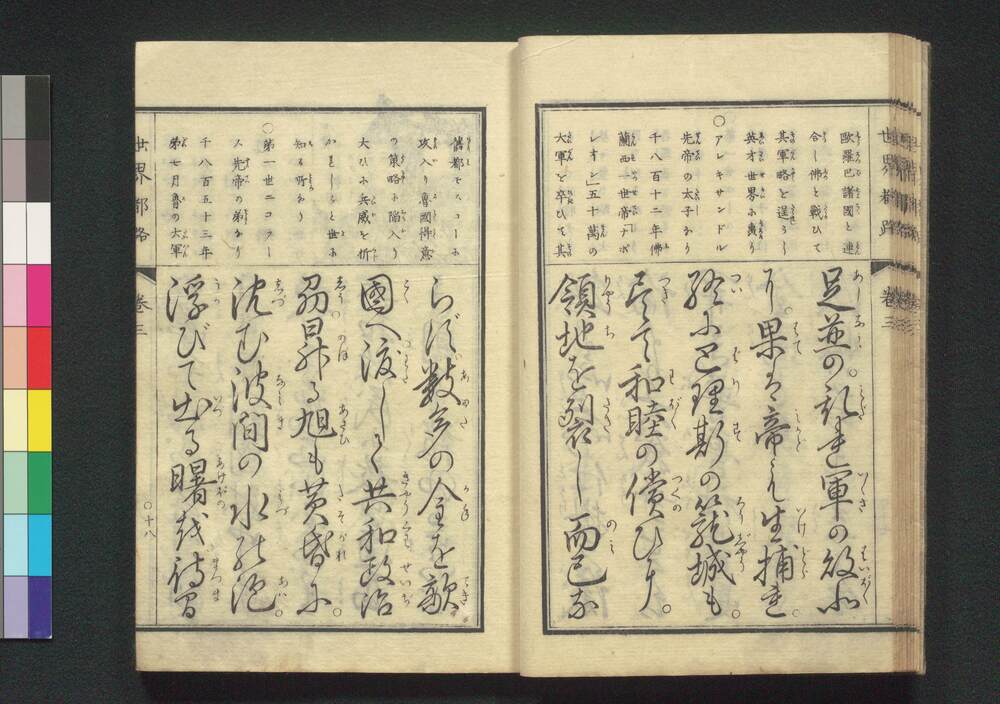 歐羅巴諸國と連
合し佛と戰ひて
其軍略を逞うし
英才世界に轟り
○アレキサンドル
先帝の太子なり
千八百十二年佛
蘭西一世帝ナポ
レオン」五十萬の
大軍を卒ひて其
足並の乱き軍の敗北
り。果は帝も生捕き。
終に巴理斯の籠城も。
尽きて和睦の償ひ。
領地を割し而已な
世界都路
卷三
舊都モスコーに
攻入り魯國得意
の策略に陷入り
大ひに兵威を折
知る所なり
○第一世ニコラー
ス先帝の弟なり
千八百五十三年
第七月魯の大軍
らず数多の金を敵
國へ渡し〻共和政治
昇る旭も黄昏に。
沈む波間の水の泡。
浮びて出る曙を待間
世界都路
卷三
○十八